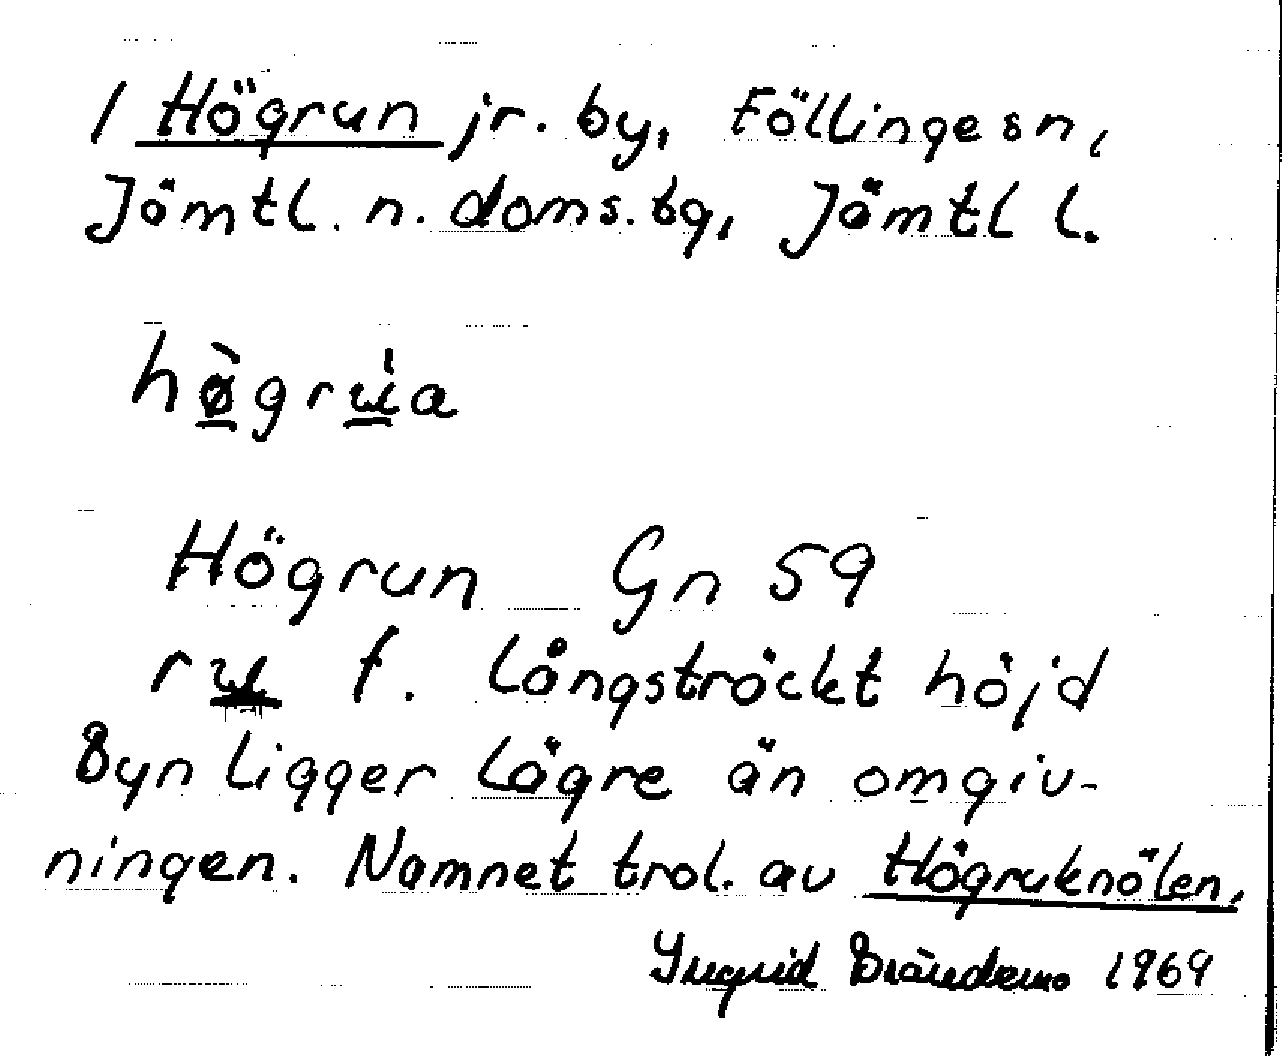 1 Högrun jr. by, Föllinge sn,
Jämtl. n. doms.bg, Jämtl l.
hø̀gru̍a
Högrun Gn 59
ru f. långsträckt höjd
Byn ligger lägre än omgiv-
ningen. Namnet trol. av Högruknölen,
Ingrid Brändemo 1969